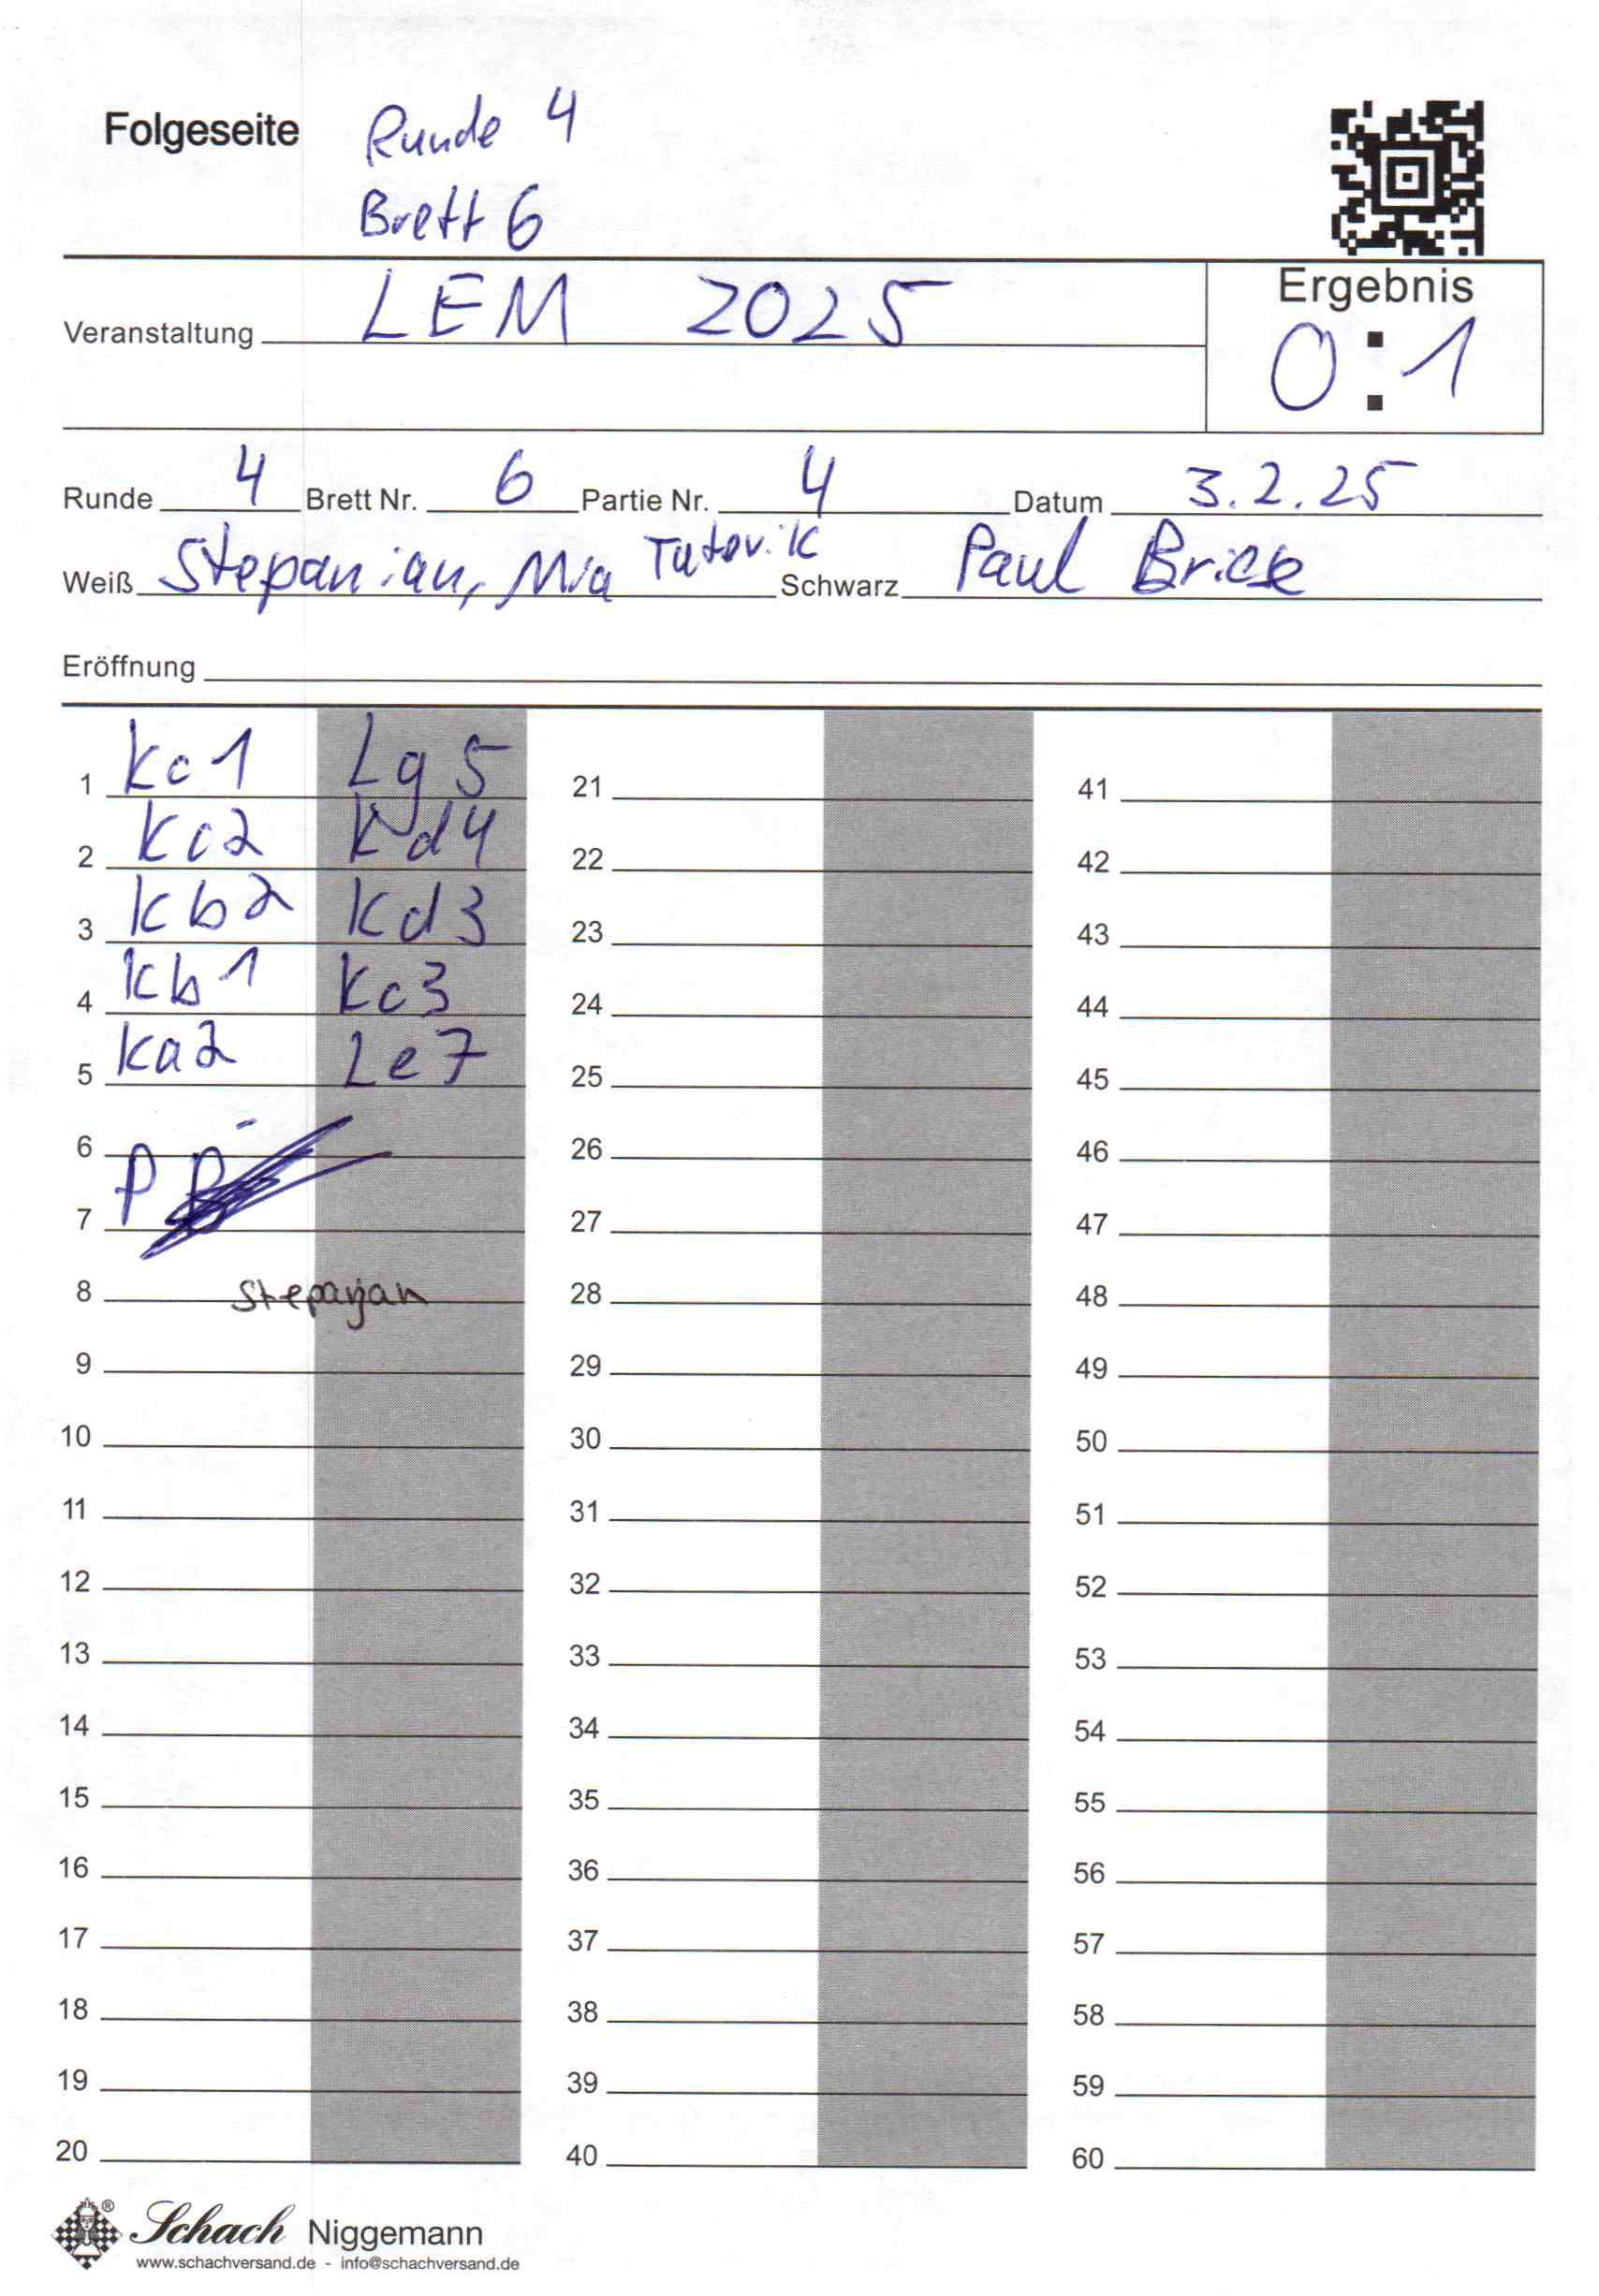 Folgeseite Runde 4
Brett 6
Ergebnis
Veranstaltung LEM 2025
0:1
Runde 4 Brett Nr. 6 Partie Nr. 4 Datum 3.2.25
Weiß Stepanian, Mia Tatevik Schwarz Paul Brick
Eröffnung
1 Kc1 Lg5 21 41
2 Kc2 Kd4 22 42
3 Kb2 Kd3 23 43
4 Kb1 Kc3 24 44
5 Ka2 Le7 25 45
6 26 46
7 P B 27 47
8 Stepanjan 28 48
9 29 49
10 30 50
11 31 51
12 32 52
13 33 53
14 34 54
15 35 55
16 36 56
17 37 57
18 38 58
19 39 59
20 40 60
® Schach Niggemann
www.schachversand.de - info@schachversand.de